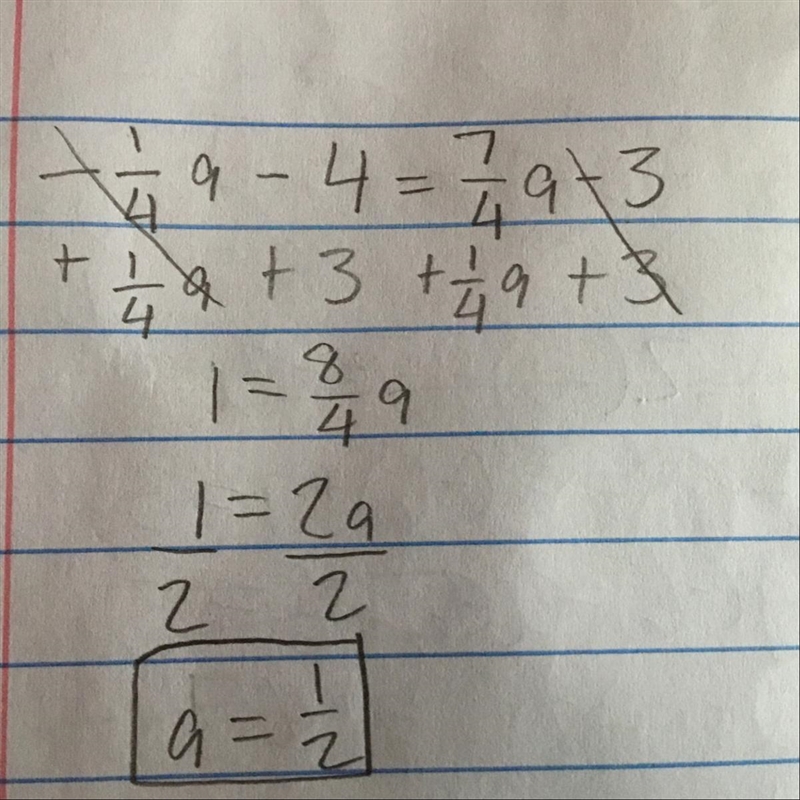 - 1/4 a - 4 = 7/4 a - 3
+ 1/4 a + 3 + 1/4 a + 3
1 = 8/4 a
1/2 = 2a/2
a = 1/2